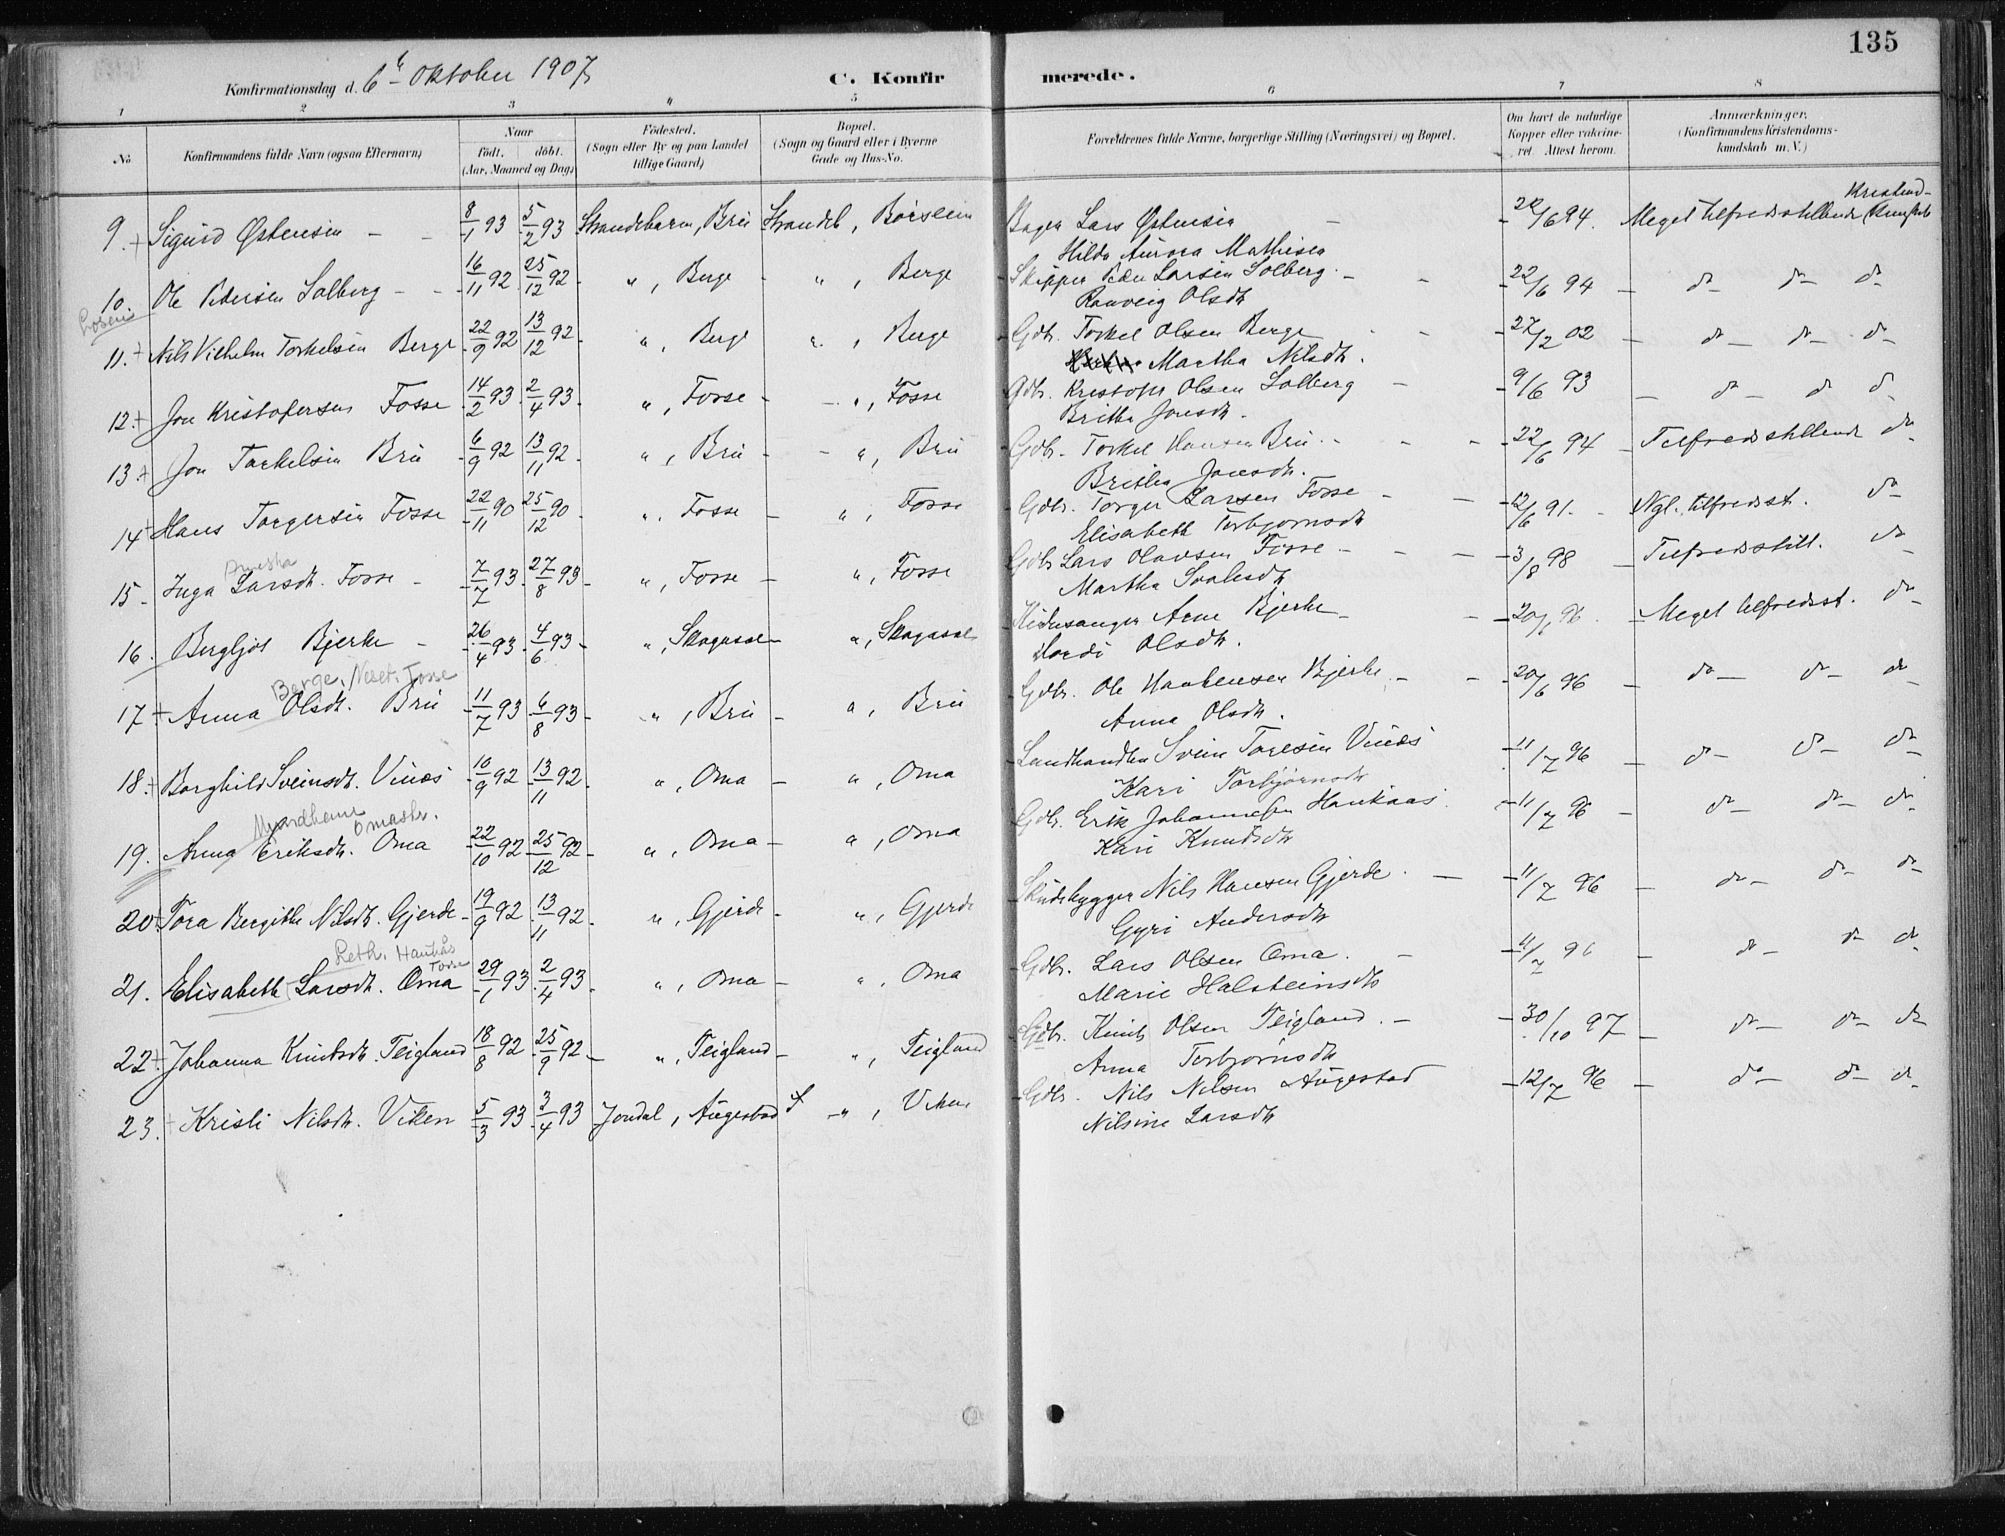 135
Konfirmationsdag d. 6te Oktober 1907
C. Konfirmerede.
1 2 3 4 5 6 7 8
No
Konfirmandens fulde Navn (ogsaa Efternavn)
Naar
födt. döbt.
(Aar, Maaned og Dag)
Födested.
(Sogn eller By og paa Landet
tillige Gaard)
Bopæl.
(Sogn og Gaard eller i Byerne
Gade og Hus-No.
Forældrenes fulde Navne, borgerlige Stilling (Næringsvei) og Bopæl.
Om havt de naturlige
Kopper eller vakcine-
ret. Attest herom.
Anmærkninger,
(Konfirmandens Kristendoms-
kundskab m. V.)
9. + Sigurd Østensen - - 8/1 93 5/2 93 Strandebarm, Bru Strandeb, Børsheim Bager Lars Østensen - 20/6 94. Meget tilfredsstillende Kristend-
Hilda Aurora Mathisen
10. Ole Pedersen Solberg - - 16/11 92 25/12 92 - " , Berge - " , Berge - Skipper Peder Larsen Solberg - - 22/6 94 - do - do - do
Ranveig Olsdt.
11. + Nils Vilhelm Torkelsen Berge 22/9 92 13/12 92 - " , Berge " , Berge - Gdb. Torkel Olsen Berge - - 27/2 02 - do - do - do
Martha Nilsdt.
12. + Jon Kristofersen Fosse 14/2 93 2/4 93 - " , Fosse - - " , Fosse Gdb. Kristofer Olsen Solberg - 9/6 93 - do - do do
Britha Jonsdt.
13. + Jon Torkelsen Bru 6/9 92 13/11 92 - " , Bru - - " , Bru - Gdb. Torkel Hansen Bru - - - 22/6 94 - Tilfredsstillende do
Britha Jonsdt.
14 - Hans Torgersen Fosse 22/11 90 25/12 90 - " , Fosse - " , Fosse - Gdb. Torger Larsen Fosse - - 12/6 91. - Ngl. tilfredsst. do
Elisabeth Torbjørnsdt
15. Inga Larsdt. Fosse - 7/7 93 27/8 93 - " , Fosse - " , Fosse Gdb Lars Olavsen Fosse - - - 3/8 98 - Tilfredsstill. do
Martha
16. Bergljot Bjerke - 26/4 93 4/6 93 - " , Skogasæl - " , Skogasæl Kirkesanger Arne Bjerke - - 20/6 96. - Meget tilfredsst. do
Olsdt.
Berge, Fosse
17 - Anna Olsdt. Bru 11/7 93 6/8 93 - " , Bru - " , Bru - Gdb. Ole Haakensen Bjerke - - 20/6 96 - do - do - do
Anna Olsdt.
18. + Borghild Sveinsdt. Vinæs 10/9 92 13/11 92 - " , Oma - " , Oma - Landhandler Svein Toresen Vinæs - 11/7 96 - do - do - do
Kari Torbjørnsdt
Omastr.
19. Anna Eriksdt. Oma 22/10 92 25/12 92 - " , Oma - " , Oma - Gdb. Erik Johannessen Haukaas - 11/7 96 - do - do - do
Kari Knudsdt
20. Tora Bergithe Nilsdt. Gjerde - 19/9 92 13/11 92 - " , Gjerde - " , Gjerde - Skudebygger Nils Hansen Gjerde - - 11/7 96 - do - do - do
Gyri Andersdt
Haukås
Fosse
21. Elisabeth Larsdt. Oma 29/1 93 2/4 93 - " , Oma - " , Oma - Gdb. Lars Olsen Oma. - - 11/7 96 - do - do do
Marie Halsteinsdt
22 + Johanna Knutsdt. Teigland 18/8 92 25/9 92 - " , Teigland - " , Teigland - Gdb. Knut Olsen Teigland. - - 30/10 97 - do - do - do
Anna Torbjørnsdt
23. + Kristi Nilsdt. Viken 5/3 93 3/4 93 Jondal, Augestad - " , Viken - Gdb. Nils Nilsen Augestad - 12/7 96 - do - do - do
Nilsine Larsdt